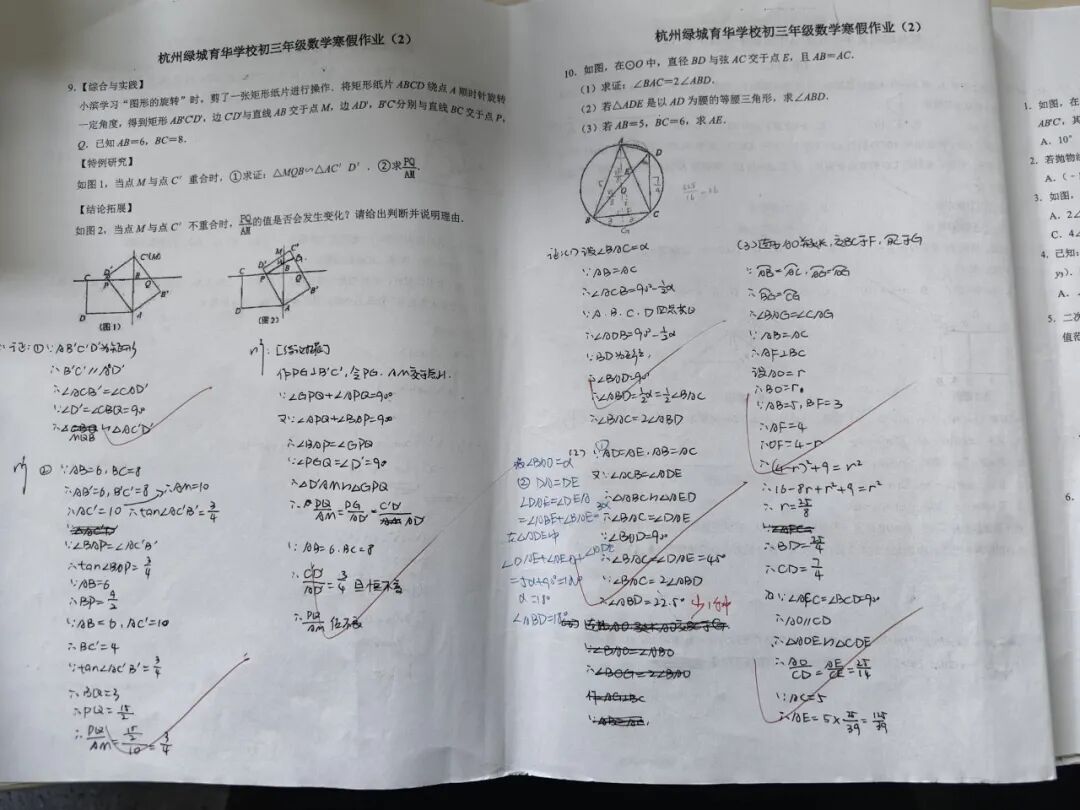 杭州绿城育华学校初三年级数学寒假作业（2）
9.【综合与实践】
小滨学习“图形的旋转”时，剪了一张矩形纸片进行操作．将矩形纸片 ABCD 绕点 A 顺时针旋转
一定角度，得到矩形 AB'C'D'，边 C'D'与直线 AB 交于点 M，边 AD'，B'C'分别与直线 BC 交于点 P，
Q．已知 AB=6，BC=8．
【特例研究】
如图1，当点 M 与点 C' 重合时，①求证：△MQB∽△AC'D'．②求PQ/AM．
【结论拓展】
如图2，当点 M 与点 C' 不重合时，PQ/AM的值是否会发生变化？请给出判断并说明理由．
（图1）
（图2）
证：①∵AB'C'D'为矩形
∴B'C'∥AD'
∴∠ACB'=∠CAD'
∵∠D'=∠CBQ=90
∴△MQB∽△AC'D'
解 ② ∵AB=6，BC=8
∴AB'=6，B'C'=8，∴AM=10
∴AC'=10 ∴tan∠AC'B'=3/4
∵∠BAP=∠AC'B'
∴tan∠BAP=3/4
∵AB=6
∴BP=9/2
∵AB=6，AC'=10
∴BC'=4
∵tan∠AC'B'=3/4
∴BQ=3
∴PQ=15/2
∴PQ/AM=15/2/10=3/4
解：[结论拓展]
作PG⊥B'C'，令PG．AM交于点H．
∵∠GPQ+∠APQ=90°
又∵∠APQ+∠BAP=90
∴∠BAP=∠GPQ
∵∠PGQ=∠D'=90
∴△D'AM∽△GPQ
∴PQ/AM=PG/AD'=C'D'/AD'
∵AB=6．BC=8
∴C'D'/AD'=3/4 且恒不变
∴PQ/AM值不变
杭州绿城育华学校初三年级数学寒假作业（2）
10．如图，在⊙O 中，直径 BD 与弦 AC 交于点 E，且 AB=AC．
（1）求证：∠BAC=2∠ABD．
（2）若△ADE 是以 AD 为腰的等腰三角形，求∠ABD．
（3）若 AB=5，BC=6，求 AE．
证：(1) 设∠BAC=α
∵AB=AC
∴∠ACB=90°-½α
∵A．B．C．D四点共圆
∴∠ADB=90°-½α
∵BD为直径，
∴∠BAD=90°
∴∠ABD=½α=½∠BAC
∴∠BAC=2∠ABD
(2) ①∵AD=AE，AB=AC
又∵∠ACB=∠ADE
∴△ABC∽△AED
∴∠BAC=∠DAE
∵∠BAD=90°
∴∠BAC=∠DAE=45°
∵∠BAC=2∠ABD
∴∠ABD=22.5°
② DA=DE
∠DAE=∠DEA
=∠ABE+∠BAE=3α
在△ADE中
α=18°
∠ABD=18°
(3)连AO并延长，交BC于F，⊙O于G
∵AB=AC，AG=AG
∴BG=CG
∴∠BAG=∠CAG
∵AB=AC
∴AF⊥BC
设AO=r
∴BO=r．
∵AB=5，BF=3
∴AF=4
∴OF=4-r
∴(4-r)²+9=r²
∴16-8r+r²+9=r²
∴r=25/8
∴BD=25/4
∴CD=7/4
又∵∠AFC=∠BCD=90°
∴AO∥CD
∴△AOE∽△CDE
∴AO/CD=AE/CE=25/14
∵AC=5
∴AE=5×25/39=125/39
1．如图，在
AB'C'，其
A．10°
2．若抛物线
A．（-
3．如图，
A．2∠
C．4∠
4．已知：
A．
5．二次
值符
6．